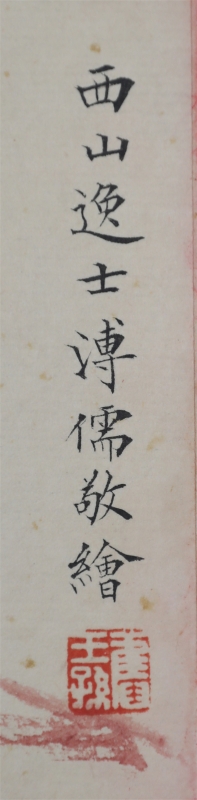 西山逸士溥儒敬繪
舊王孫